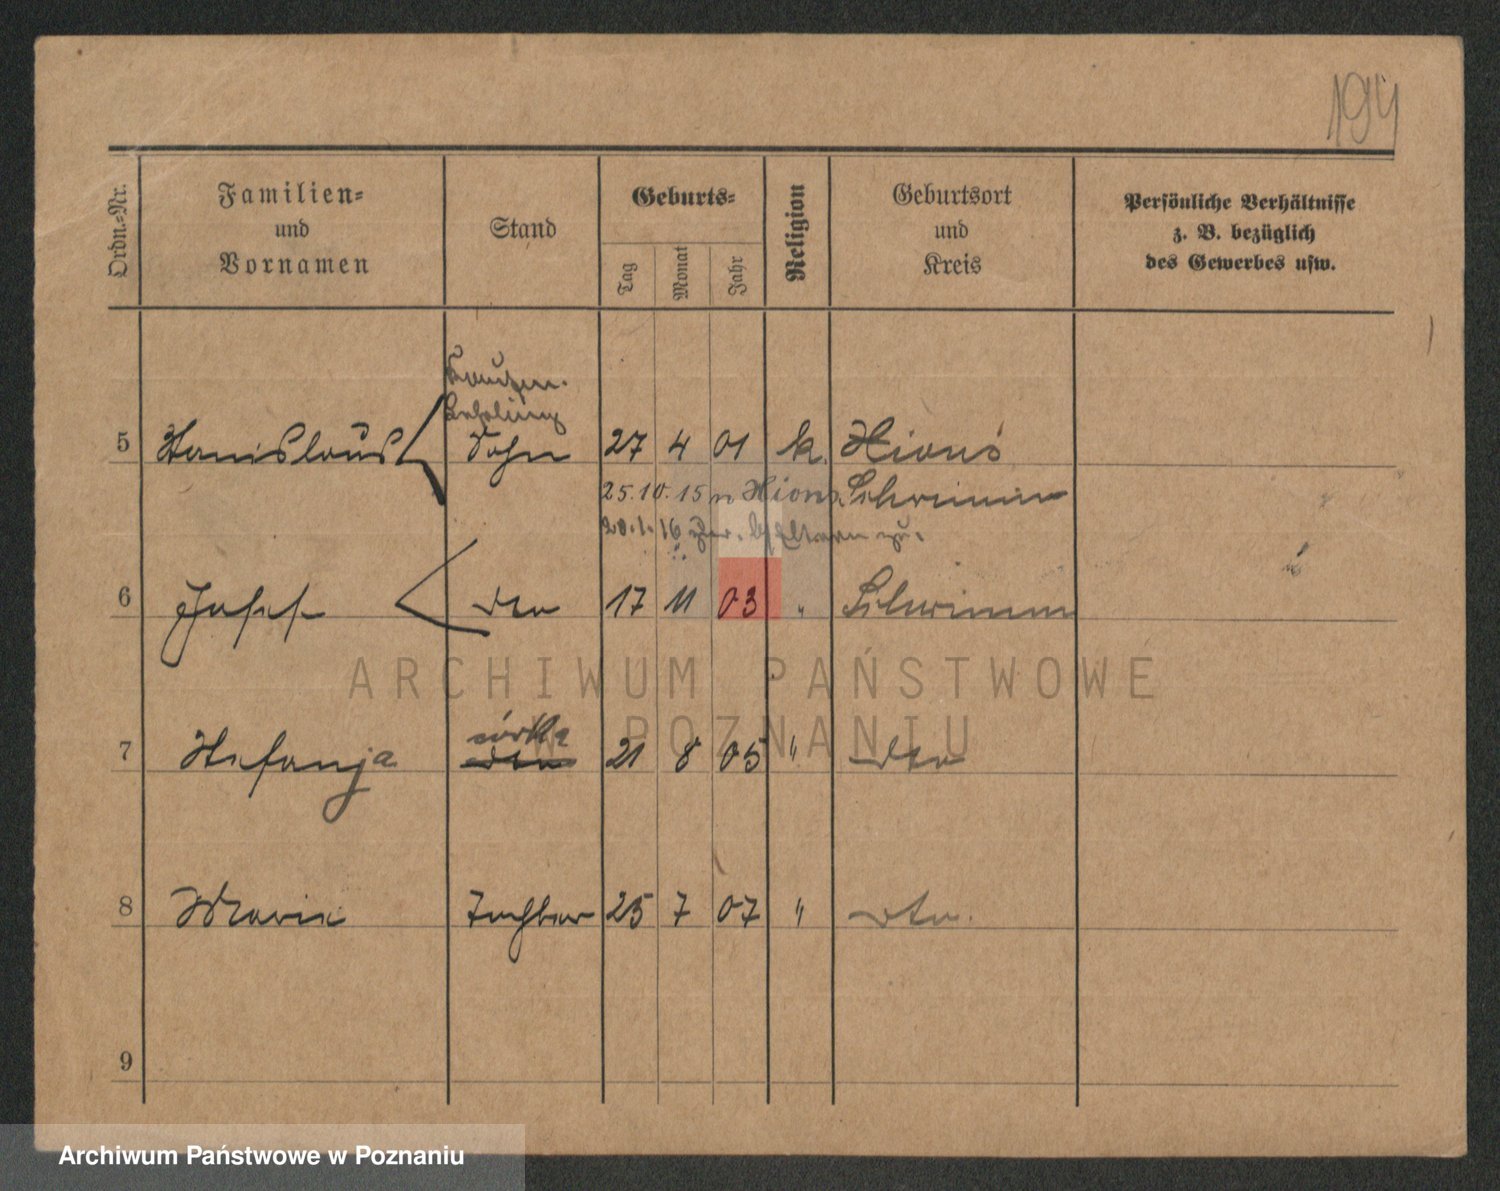 194
Ordn.-Nr.
Familien-
und
Vornamen
Stand
Geburts-
Tag
Monat
Jahr
Religion
Geburtsort
und
Kreis
Persönliche Verhältnisse
z. B. bezüglich
des Gewerbes usw.
5 Stanislaus Sohn 27 4 01 k. Xions
25.10.15 n Xions Schrimm
28.1.16
6 Josef dto 17 11 03 " Schrimm
córka
7 Stefanja dto 21 8 05 " dto
8 Maria Tochter 25 7 07 " dto.
9
ARCHIWUM PAŃSTWOWE
W POZNANIU
Archiwum Państwowe w Poznaniu